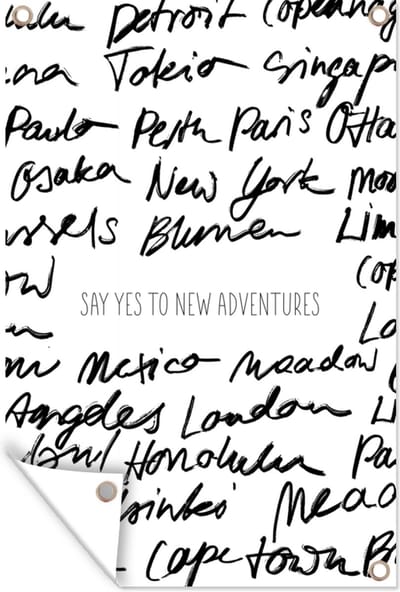 Detroit Copenhag
Tokio Singap
Paulo Perth Paris Otta
Osaka New York Mos
ussels Blumen Lim
SAY YES TO NEW ADVENTURES
Mexico Meadow
Angeles London
Honolulu Pa
lsinki Mead
Cape town Br